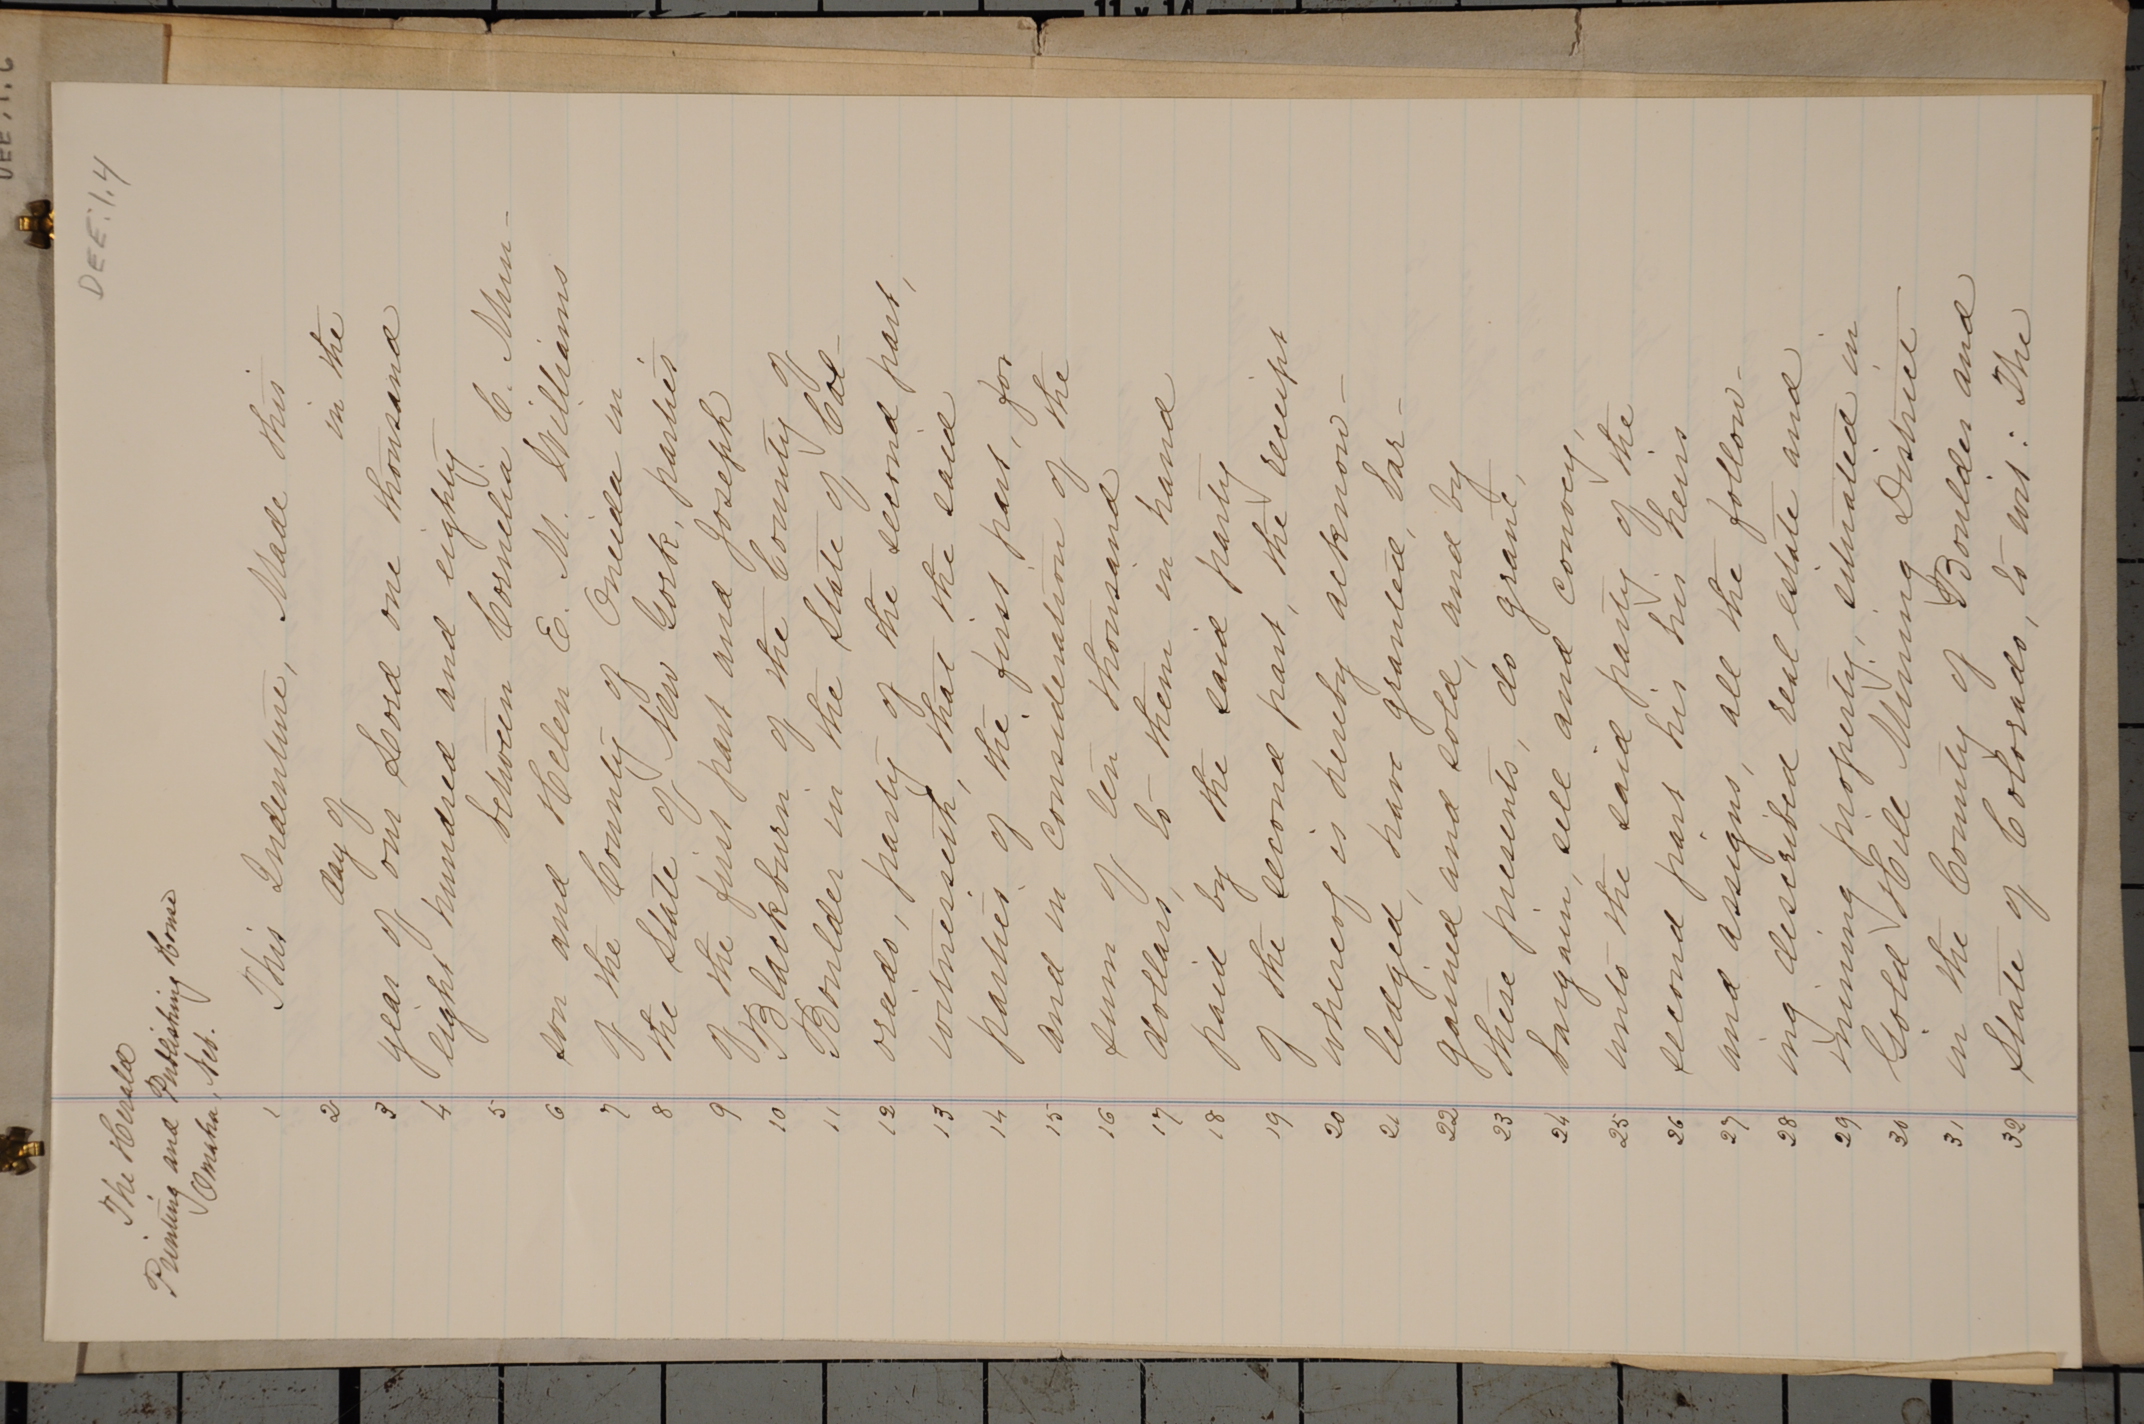 DEE:1.4
The Herald
Printing and Publishing House
Omaha, Neb.
1 This Indenture, Made this
2 day of in the
3 year of our Lord one thousand
4 eight hundred and eighty
5 between Cornelia C. Mun-
6 son and Helen E. M. Williams
7 of the County of Oneida in
8 the State of New York, parties
9 of the first part and Joseph
10 Blackburn of the County of
11 Boulder in the State of Col-
12 orado, party of the second part,
13 witnesseth, that the said
14 parties of the first part, for
15 and in consideration of the
16 sum of ten thousand
17 dollars, to them in hand
18 paid by the said party
19 of the second part, the receipt
20 whereof is hereby acknow-
21 ledged, have granted, bar-
22 gained and sold, and by
23 these presents, do grant,
24 bargain, sell and convey,
25 unto the said party of the
26 second part his his heirs
27 and assigns, all the follow-
28 ing described real estate and
29 mining property, situated in
30 Gold Hill Mining District
31 in the County of Boulder and
32 State of Colorado, to wit: The
11 x 14